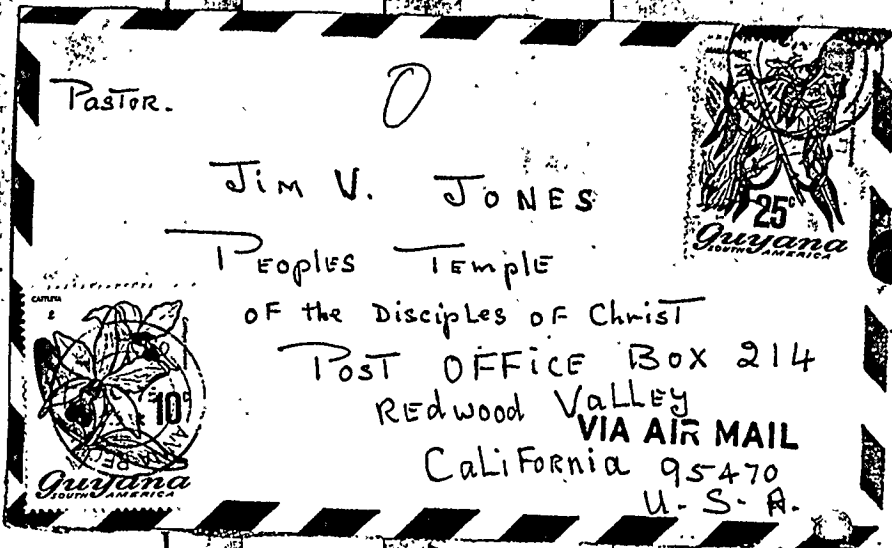 Pastor.
O
Jim V. Jones
Peoples Temple
of the Disciples of Christ
Post Office Box 214
Redwood Valley
VIA AIR MAIL
California 95470
U.S.A.
25c
Guyana
SOUTH AMERICA
CATTLEYA
10c
Guyana
SOUTH AMERICA